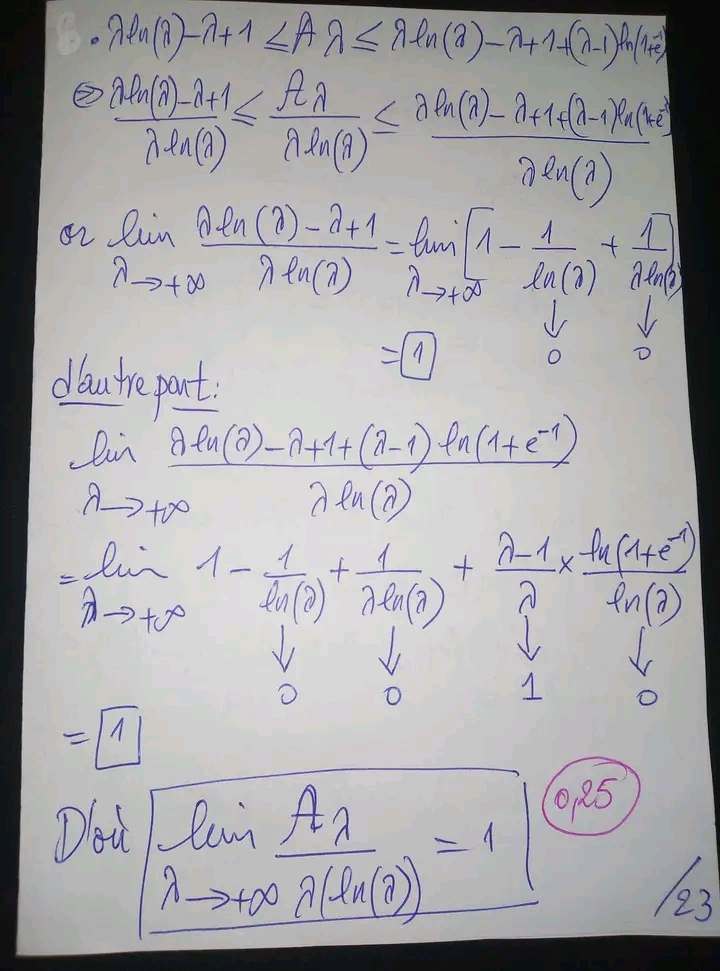 • λln(λ)-λ+1 ≤ Aλ ≤ λln(λ)-λ+1+(λ-1)ln(1+e⁻¹)
⇔ (λln(λ)-λ+1)/(λln(λ)) ≤ Aλ/(λln(λ)) ≤ (λln(λ)-λ+1+(λ-1)ln(1+e⁻¹))/(λln(λ))
or lim λ→+∞ (λln(λ)-λ+1)/(λln(λ)) = lim λ→+∞ [1 - 1/ln(λ) + 1/(λln(λ))]
↓ ↓
= 1 0 0
d'autre part:
lim λ→+∞ (λln(λ)-λ+1+(λ-1)ln(1+e⁻¹))/(λln(λ))
= lim λ→+∞ 1 - 1/ln(λ) + 1/(λln(λ)) + (λ-1)/λ × ln(1+e⁻¹)/ln(λ)
↓ ↓ ↓ ↓
0 0 1 0
= 1
0,25
D'où lim λ→+∞ Aλ/(λ(ln(λ))) = 1
/23